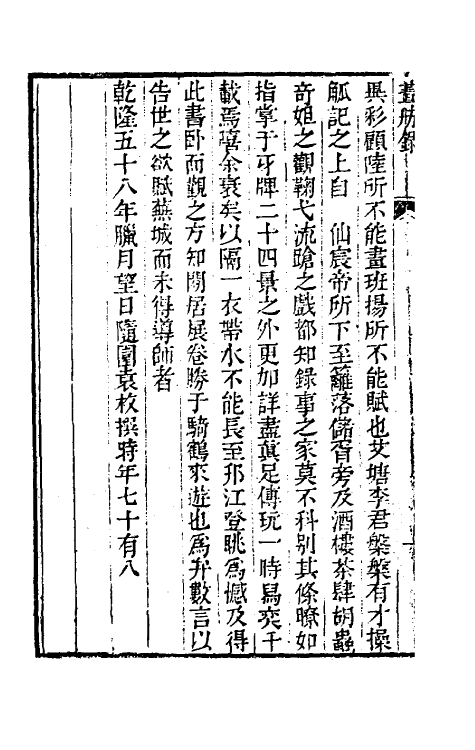 畫舫錄
異彩顧陸所不能畫班揚所不能賦也艾塘李君槃槃有才操
觚記之上自　仙宸帝所下至籬落儲胥旁及酒樓茶肆胡蟲
奇妲之觀鞠弋流蹌之戲都知錄事之家莫不科別其條瞭如
指掌于牙牌二十四景之外更加詳盡眞足傳玩一時舄奕千
載焉噫余衰矣以隔一衣帶水不能長至邗江登眺爲憾及得
此書臥而觀之方知閒居展卷勝于騎鶴來遊也爲弁數言以
告世之欲賦蕪城而未得導師者
乾隆五十八年臘月望日隨園袁枚撰時年七十有八